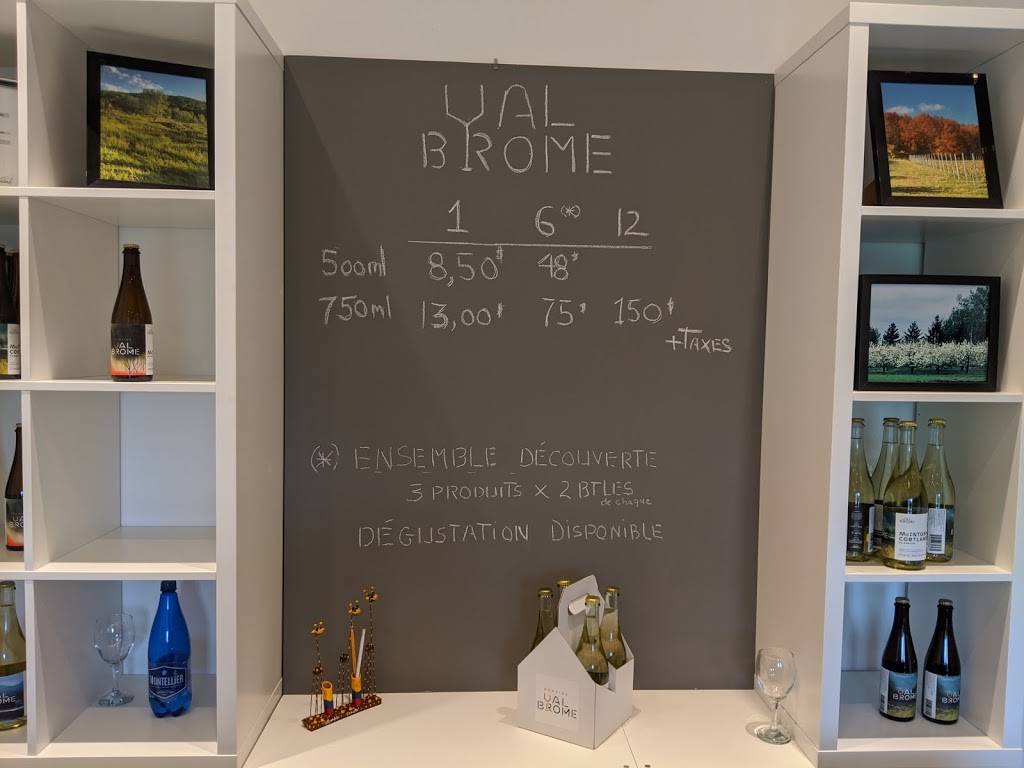 UAL
BROME
1 6(*) 12
500ml 8,50$ 48$
750ml 13,00$ 75$ 150$
+TAXES
(*) ENSEMBLE DÉCOUVERTE
3 PRODUITS X 2 BTLES
de chaque
DÉGUSTATION DISPONIBLE
UAL
BROME
UAL
BROME
MONTELLIER
UAL
BROME
McINTOSH
CORTLAND
UAL
BROME
UAL
BROME